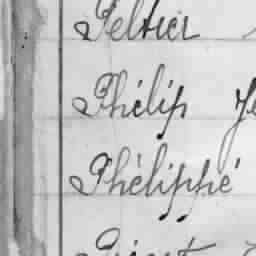 Peltier
Phélip Je
Phélippé